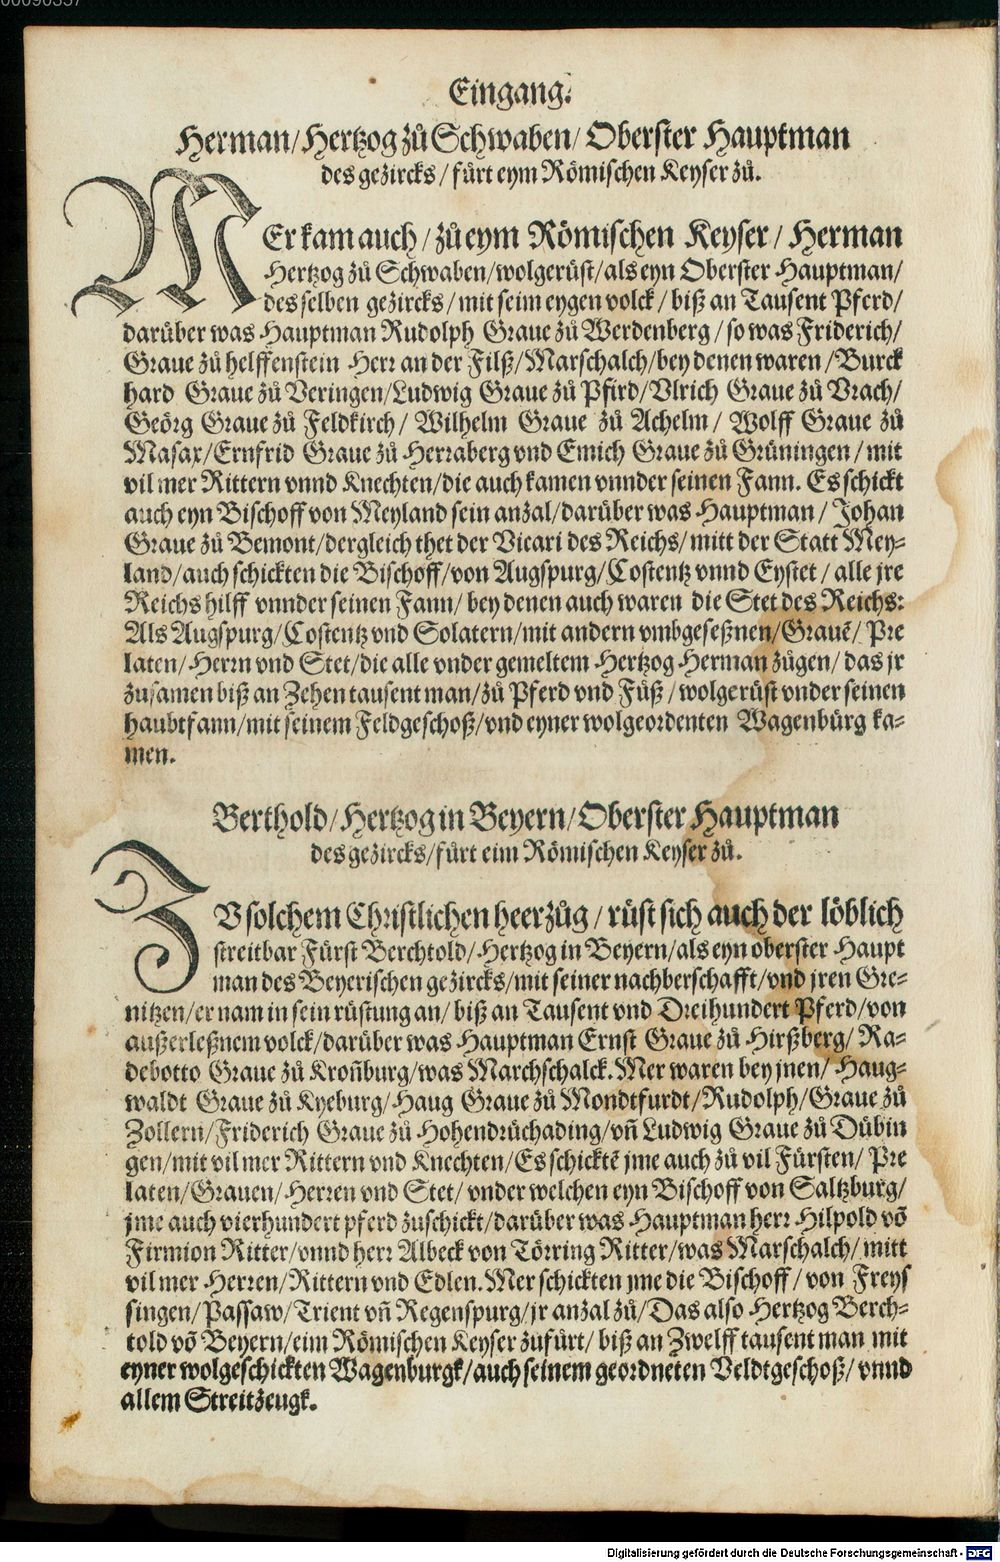 00090337
Eingang.
Herman/ Hertzog zů Schwaben/ Oberster Hauptman
des gezircks/ fürt eym Römischen Keyser zů.
MEr kam auch/ zů eym Römischen Keyser/ Herman
Hertzog zů Schwaben/ wolgerüst/ als eyn Oberster Hauptman/
des selben gezircks/ mit seim eygen volck/ biß an Tausent Pferd/
darüber was Hauptman Rudolph Graue zů Werdenberg/ so was Friderich/
Graue zů helffenstein Herr an der Filß/ Marschalch/ bey denen waren/ Burck
hard Graue zů Veringen/ Ludwig Graue zů Pfird/ Vlrich Graue zů Vrach/
Geörg Graue zů Feldkirch/ Wilhelm Graue zů Achelm/ Wolff Graue zů
Masax/ Ernfrid Graue zů Herraberg vnd Emich Graue zů Grüningen/ mit
vil mer Rittern vnnd Knechten/ die auch kamen vnnder seinen Fann. Es schickt
auch eyn Bischoff von Meyland sein anzal/ darüber was Hauptman/ Johan
Graue zů Bemont/ dergleich thet der Vicari des Reichs/ mitt der Statt Mey-
land/ auch schickten die Bischoff/ von Augspurg/ Costentz vnnd Eystet/ alle jre
Reichs hilff vnnder seinen Fann/ bey denen auch waren die Stet des Reichs:
Als Augspurg/ Costentz vnd Solatern/ mit andern vmbgeseßnen/ Grauē/ Pre
laten/ Herrn vnd Stet/ die alle vnder gemeltem Hertzog Herman zügen/ das jr
zusamen biß an Zehen tausent man/ zů Pferd vnd Fůß/ wolgerüst vnder seinen
haubtfann/ mit seinem Feldgeschoß/ vnd eyner wolgeordenten Wagenbürg ka-
men.
Berthold/ Hertzog in Beyern/ Oberster Hauptman
des gezircks/ fürt eim Römischen Keyser zů.
ZV solchem Christlichen heerzůg/ rüst sich auch der löblich
streitbar Fürst Berchtold/ Hertzog in Beyern/ als eyn oberster Haupt
man des Beyerischen gezircks/ mit seiner nachberschafft/ vnd jren Gre-
nitzen/ er nam in sein rüstung an/ biß an Tausent vnd Dreihundert Pferd/ von
außerleßnem volck/ darüber was Hauptman Ernst Graue zů Hirßberg/ Ra-
debotto Graue zů Kroñburg/ was Marchschalck. Mer waren bey jnen/ Haug-
waldt Graue zů Kyeburg/ Haug Graue zů Mondtfurdt/ Rudolph/ Graue zů
Zollern/ Friderich Graue zů Hohendrüchading/ vñ Ludwig Graue zů Dübin
gen/ mit vil mer Rittern vnd Knechten/ Es schicktē jme auch zů vil Fürsten/ Pre
laten/ Grauen/ Herren vnd Stet/ vnder welchen eyn Bischoff von Saltzburg/
jme auch vierhundert pferd zuschickt/ darüber was Hauptman herr Hilpold vō
Firmion Ritter/ vnnd herr Albeck von Törring Ritter/ was Marschalch/ mitt
vil mer Herren/ Rittern vnd Edlen. Mer schickten jme die Bischoff/ von Freys
singen/ Passaw/ Trient vñ Regenspurg/ jr anzal zů/ Das also Hertzog Berch-
told vō Beyern/ eim Römischen Keyser zufürt/ biß an Zwelff tausent man mit
eyner wolgeschickten Wagenburgk/ auch seinem geordneten Veldtgeschoß/ vnnd
allem Streitzeugk.
Digitalisierung gefördert durch die Deutsche Forschungsgemeinschaft - DFG